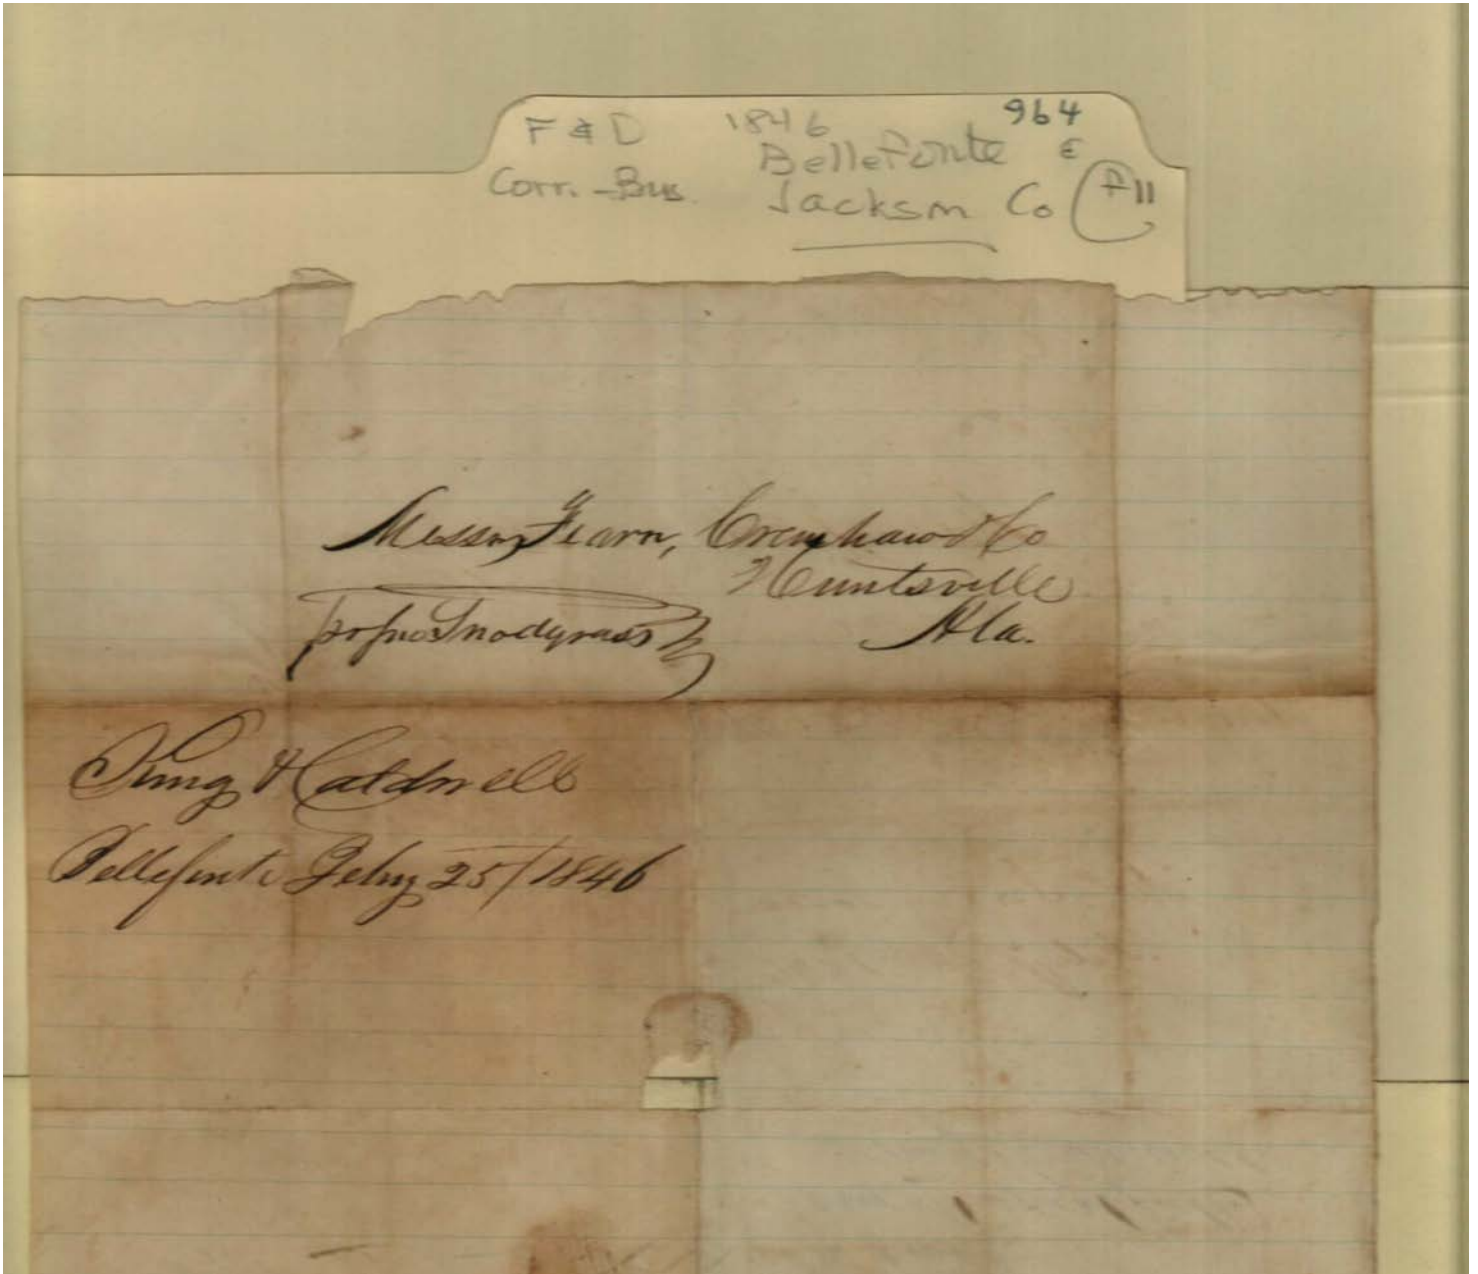 F & D 1846 964
Bellefonte E
Corr. - Bus. Jackson Co F11
Messrs Fearn, Crenshaw & Co
Huntsville
pr Jno Snodgrass
Ala.
King & Caldwell
Bellefonte Feby 25/1846